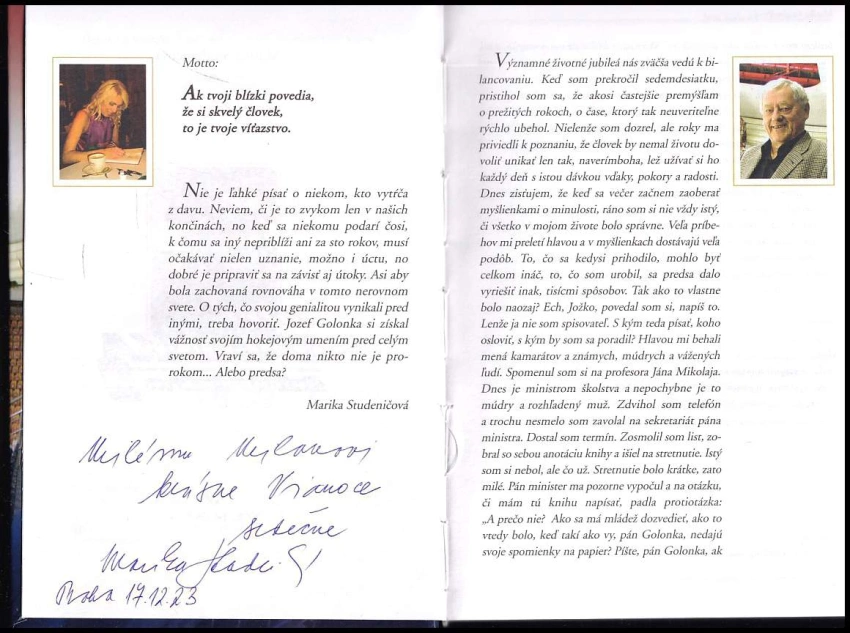 Motto:
Ak tvoji blízki povedia,
že si skvelý človek,
to je tvoje víťazstvo.
Nie je ľahké písať o niekom, kto vytŕča
z davu. Neviem, či je to zvykom len v našich
končinách, no keď sa niekomu podarí čosi,
k čomu sa iný nepriblíži ani za sto rokov, musí
očakávať nielen uznanie, možno i úctu, no
dobré je pripraviť sa na závisť aj útoky. Asi aby
bola zachovaná rovnováha v tomto nerovnom
svete. O tých, čo svojou genialitou vynikali pred
inými, treba hovoriť. Jozef Golonka si získal
vážnosť svojím hokejovým umením pred celým
svetom. Vraví sa, že doma nikto nie je pro-
rokom... Alebo predsa?
Marika Studeničová
Milému Milanovi
krásne Vianoce
srdečne
Marika
Praha 17.12.23
Významné životné jubileá nás zväčša vedú k bi-
lancovaniu. Keď som prekročil sedemdesiatku,
pristihol som sa, že akosi častejšie premýšľam
o prežitých rokoch, o čase, ktorý tak neuveriteľne
rýchlo ubehol. Nielenže som dozrel, ale roky ma
priviedli k poznaniu, že človek by nemal životu do-
voliť unikať len tak, naverímboha, lež užívať si ho
každý deň s istou dávkou vďaky, pokory a radosti.
Dnes zisťujem, že keď sa večer začnem zaoberať
myšlienkami o minulosti, ráno som si nie vždy istý,
či všetko v mojom živote bolo správne. Veľa príbe-
hov mi preletí hlavou a v myšlienkach dostávajú veľa
podôb. To, čo sa kedysi prihodilo, mohlo byť
celkom ináč, to, čo som urobil, sa predsa dalo
vyriešiť inak, tisícmi spôsobov. Tak ako to vlastne
bolo naozaj? Ech, Jožko, povedal som si, napíš to.
Lenže ja nie som spisovateľ. S kým teda písať, koho
osloviť, s kým by som sa poradil? Hlavou mi behali
mená kamarátov a známych, múdrych a vážených
ľudí. Spomenul som si na profesora Jána Mikolaja.
Dnes je ministrom školstva a nepochybne je to
múdry a rozhľadený muž. Zdvihol som telefón
a trochu nesmelo som zavolal na sekretariát pána
ministra. Dostal som termín. Zosmolil som list, zo-
bral so sebou anotáciu knihy a išiel na stretnutie. Istý
som si nebol, ale čo už. Stretnutie bolo krátke, zato
milé. Pán minister ma pozorne vypočul a na otázku,
či mám tú knihu napísať, padla protiotázka:
„A prečo nie? Ako sa má mládež dozvedieť, ako to
vtedy bolo, keď takí ako vy, pán Golonka, nedajú
svoje spomienky na papier? Píšte, pán Golonka, ak